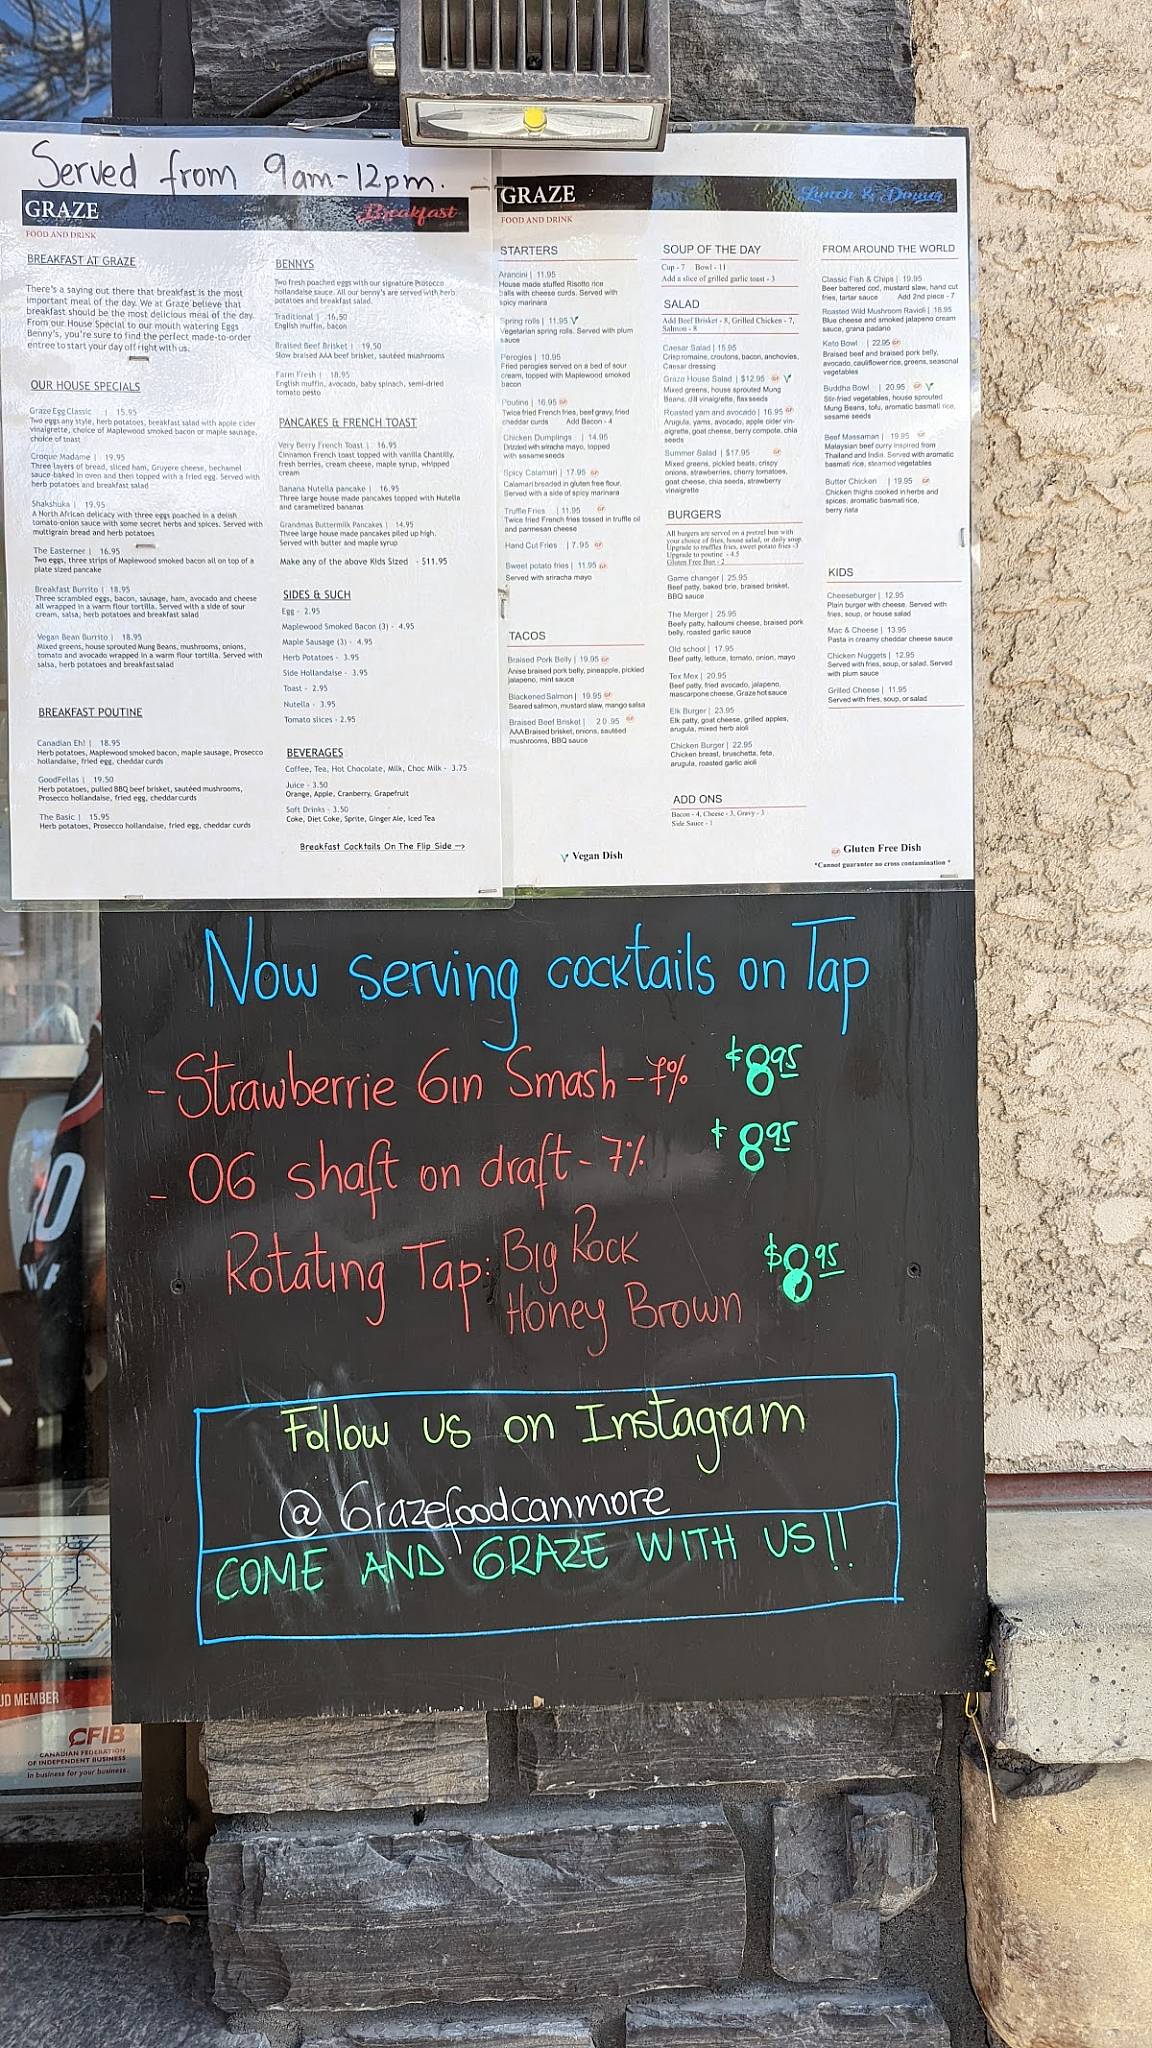 Served from 9am-12pm.
GRAZE
Breakfast
FOOD AND DRINK
BREAKFAST AT GRAZE
There's a saying out there that breakfast is the most
important meal of the day. We at Graze believe that
breakfast should be the most delicious meal of the day.
From our House Special to our mouth watering Eggs
Benny's, you're sure to find the perfect made-to-order
entree to start your day off right with us.
OUR HOUSE SPECIALS
Graze Egg Classic | 15.95
Two eggs any style, herb potatoes, breakfast salad with apple cider
vinaigrette, choice of Maplewood smoked bacon or maple sausage,
choice of toast
Croque Madame | 19.95
Three layers of bread, sliced ham, Gruyere cheese, bechamel
sauce baked in oven and then topped with a fried egg. Served with
herb potatoes and breakfast salad
Shakshuka | 19.95
A North African delicacy with three eggs poached in a delish
tomato-onion sauce with some secret herbs and spices. Served with
multigrain bread and herb potatoes
The Easterner | 16.95
Two eggs, three strips of Maplewood smoked bacon all on top of a
plate sized pancake
Breakfast Burrito | 18.95
Three scrambled eggs, bacon, sausage, ham, avocado and cheese
all wrapped in a warm flour tortilla. Served with a side of sour
cream, salsa, herb potatoes and breakfast salad
Vegan Bean Burrito | 18.95
Mixed greens, house sprouted Mung Beans, mushrooms, onions,
tomato and avocado wrapped in a warm flour tortilla. Served with
salsa, herb potatoes and breakfast salad
BREAKFAST POUTINE
Canadian Eh! | 18.95
Herb potatoes, Maplewood smoked bacon, maple sausage, Prosecco
hollandaise, fried egg, cheddar curds
GoodFellas | 19.50
Herb potatoes, pulled BBQ beef brisket, sautéed mushrooms,
Prosecco hollandaise, fried egg, cheddar curds
The Basic | 15.95
Herb potatoes, Prosecco hollandaise, fried egg, cheddar curds
BENNYS
Two fresh poached eggs with our signature Prosecco
hollandaise sauce. All our benny's are served with herb
potatoes and breakfast salad.
Traditional | 16.50
English muffin, bacon
Braised Beef Brisket | 19.50
Slow braised AAA beef brisket, sautéed mushrooms
Farm Fresh | 18.95
English muffin, avocado, baby spinach, semi-dried
tomato pesto
PANCAKES & FRENCH TOAST
Very Berry French Toast | 16.95
Cinnamon French toast topped with vanilla Chantilly,
fresh berries, cream cheese, maple syrup, whipped
cream
Banana Nutella pancake | 16.95
Three large house made pancakes topped with Nutella
and caramelized bananas
Grandmas Buttermilk Pancakes | 14.95
Three large house made pancakes piled up high.
Served with butter and maple syrup
Make any of the above Kids Sized - $11.95
SIDES & SUCH
Egg - 2.95
Maplewood Smoked Bacon (3) - 4.95
Maple Sausage (3) - 4.95
Herb Potatoes - 3.95
Side Hollandaise - 3.95
Toast - 2.95
Nutella - 3.95
Tomato slices - 2.95
BEVERAGES
Coffee, Tea, Hot Chocolate, Milk, Choc Milk - 3.75
Juice - 3.50
Orange, Apple, Cranberry, Grapefruit
Soft Drinks - 3.50
Coke, Diet Coke, Sprite, Ginger Ale, Iced Tea
Breakfast Cocktails On The Flip Side →
GRAZE
Lunch & Dinner
FOOD AND DRINK
STARTERS
Arancini | 11.95
House made stuffed Risotto rice
balls with cheese curds. Served with
spicy marinara
Spring rolls | 11.95 V
Vegetarian spring rolls. Served with plum
sauce
Perogies | 10.95
Fried perogies served on a bed of sour
cream, topped with Maplewood smoked
bacon
Poutine | 16.95 GF
Twice fried French fries, beef gravy, fried
cheddar curds Add Bacon - 4
Chicken Dumplings | 14.95
Drizzled with sriracha mayo, topped
with sesame seeds
Spicy Calamari | 17.95 GF
Calamari breaded in gluten free flour.
Served with a side of spicy marinara
Truffle Fries | 11.95 GF
Twice fried French fries tossed in truffle oil
and parmesan cheese
Hand Cut Fries | 7.95 GF
Sweet potato fries | 11.95 GF
Served with sriracha mayo
TACOS
Braised Pork Belly | 19.95 GF
Anise braised pork belly, pineapple, pickled
jalapeno, mint sauce
Blackened Salmon | 19.95 GF
Seared salmon, mustard slaw, mango salsa
Braised Beef Brisket | 20.95 GF
AAA Braised brisket, onions, sautéed
mushrooms, BBQ sauce
V Vegan Dish
SOUP OF THE DAY
Cup - 7 Bowl - 11
Add a slice of grilled garlic toast - 3
SALAD
Add Beef Brisket - 8, Grilled Chicken - 7,
Salmon - 8
Caesar Salad | 15.95
Crisp romaine, croutons, bacon, anchovies,
Caesar dressing
Graze House Salad | $12.95 GF V
Mixed greens, house sprouted Mung
Beans, dill vinaigrette, flax seeds
Roasted yam and avocado | 16.95 GF
Arugula, yams, avocado, apple cider vin-
aigrette, goat cheese, berry compote, chia
seeds
Summer Salad | $17.95 GF
Mixed greens, pickled beats, crispy
onions, strawberries, cherry tomatoes,
goat cheese, chia seeds, strawberry
vinaigrette
BURGERS
All burgers are served on a pretzel bun with
your choice of fries, house salad, or daily soup.
Upgrade to truffles fries, sweet potato fries -3
Upgrade to poutine - 4.5
Gluten Free Bun - 2
Game changer | 25.95
Beef patty, baked brie, braised brisket,
BBQ sauce
The Merger | 25.95
Beefy patty, halloumi cheese, braised pork
belly, roasted garlic sauce
Old school | 17.95
Beef patty, lettuce, tomato, onion, mayo
Tex Mex | 20.95
Beef patty, fried avocado, jalapeno,
mascarpone cheese, Graze hot sauce
Elk Burger | 23.95
Elk patty, goat cheese, grilled apples,
arugula, mixed herb aioli
Chicken Burger | 22.95
Chicken breast, bruschetta, feta,
arugula, roasted garlic aioli
ADD ONS
Bacon - 4, Cheese - 3, Gravy - 3
Side Sauce - 1
FROM AROUND THE WORLD
Classic Fish & Chips | 19.95
Beer battered cod, mustard slaw, hand cut
fries, tartar sauce Add 2nd piece - 7
Roasted Wild Mushroom Ravioli | 18.95
Blue cheese and smoked jalapeno cream
sauce, grana padano
Keto Bowl | 22.95 GF
Braised beef and braised pork belly,
avocado, cauliflower rice, greens, seasonal
vegetables
Buddha Bowl | 20.95 GF V
Stir-fried vegetables, house sprouted
Mung Beans, tofu, aromatic basmati rice,
sesame seeds
Beef Massaman | 19.95 GF
Malaysian beef curry inspired from
Thailand and India. Served with aromatic
basmati rice, steamed vegetables
Butter Chicken | 19.95 GF
Chicken thighs cooked in herbs and
spices, aromatic basmati rice,
berry riata
KIDS
Cheeseburger | 12.95
Plain burger with cheese. Served with
fries, soup, or house salad
Mac & Cheese | 13.95
Pasta in creamy cheddar cheese sauce
Chicken Nuggets | 12.95
Served with fries, soup, or salad. Served
with plum sauce
Grilled Cheese | 11.95
Served with fries, soup, or salad
GF Gluten Free Dish
*Cannot guarantee no cross contamination *
Now serving cocktails on Tap
- Strawberrie Gin Smash - 7% $8.95
- OG shaft on draft - 7% $8.95
Rotating Tap: Big Rock
Honey Brown $8.95
Follow us on Instagram
@Grazefoodcanmore
COME AND GRAZE WITH US!!
UD MEMBER
CFIB
CANADIAN FEDERATION
OF INDEPENDENT BUSINESS
In business for your business.